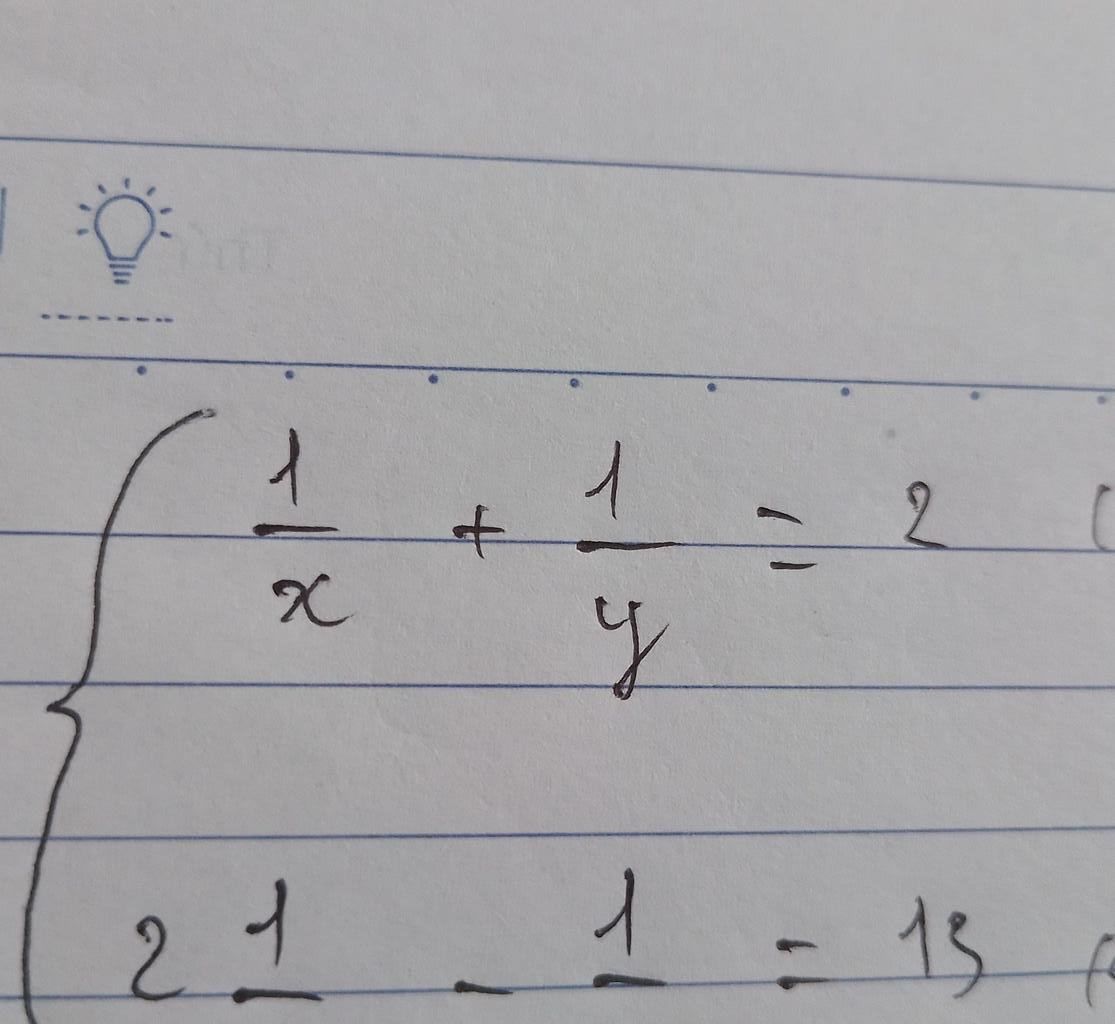 1/x + 1/y = 2 (
2 1 - 1 = 13 (